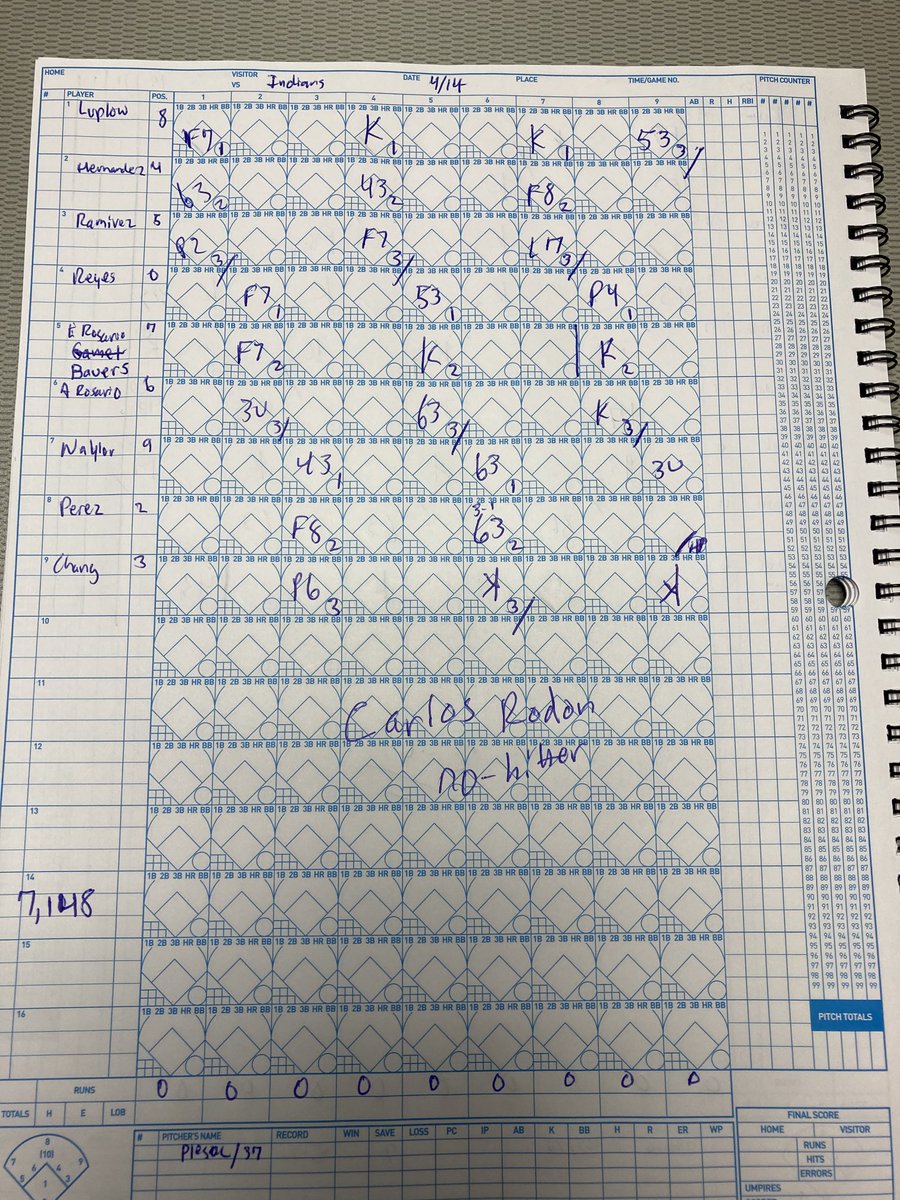 HOME VISITOR VS Indians DATE 4/14 PLACE TIME/GAME NO. PITCH COUNTER
# PLAYER POS. 1 2 3 4 5 6 7 8 9 AB R H RBI # # # # #
1 Luplow 8 F7 1 K 1 K 1 53 3
2 Hernandez 4 63 2 43 2 F8 2
3 Ramirez 5 P2 3 F7 3 L7 3
4 Reyes 0 F7 1 53 1 P4 1
5 E Rosario 7 F7 2 K 2 K 2
Gamet
Bauers
6 A Rosario 6 3U 3 63 3 K 3
7 Naylor 9 43 1 63 1 3U
8 Perez 2 F8 2 3-1 63 2 HP
9 Chang 3 P6 3 K 3 K
10
11
Carlos Rodon
12
no-hitter
13
14
7,148
15
16
PITCH TOTALS
RUNS 0 0 0 0 0 0 0 0 0
TOTALS H E LOB
# PITCHER'S NAME RECORD WIN SAVE LOSS PC IP AB K BB H R ER WP
Plesac/37
FINAL SCORE
HOME VISITOR
RUNS
HITS
ERRORS
UMPIRES
8
(10)
7 9
6 4
5 3
1